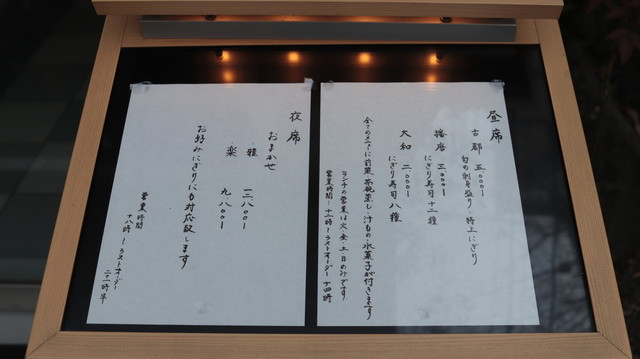 昼席
古都 五、〇〇〇ー
旬の刺身盛り、特上にぎり
播磨 三、〇〇〇ー
にぎり寿司十二種
大和 二、〇〇〇ー
にぎり寿司八種
全てのメニューに前菜、茶碗蒸し、汁もの、水菓子が付きます
ランチの営業は火、金、土、日のみです
営業時間 十二時〜ラストオーダー十四時
夜席
おまかせ
雅 一三、八〇〇ー
楽 九、八〇〇ー
お好みにぎりにも対応致します
営業時間
十八時〜ラストオーダー
二十一時半